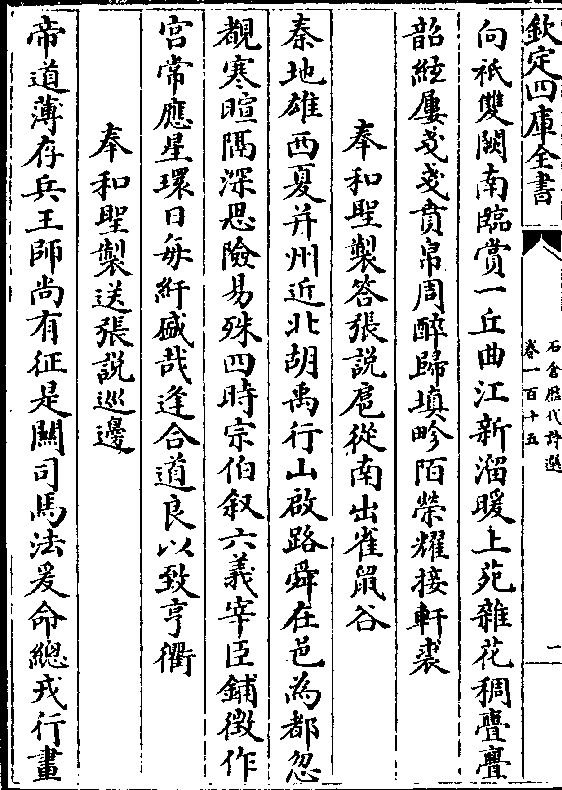 欽定四庫全書
石倉歷代詩選
卷一百十五
一
向祇雙闕南臨賞一丘曲江新溜暖上苑雜花稠亹亹
韶絃屢戔戔賁帛周醉歸填畛陌榮耀接軒裘
奉和聖製答張說扈從南出雀鼠谷
秦地雄西夏并州近北胡禹行山啟路舜在邑為都忽
覩寒暄隔深思險易殊四時宗伯叙六義宰臣鋪徵作
宫常應星環日每紆盛哉逢合道良以致亨衢
奉和聖製送張說巡邊
帝道薄存兵王師尚有征是關司馬法爰命總戎行晝